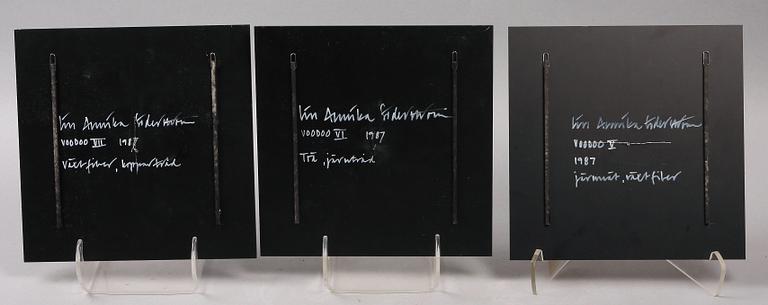 Siv Annika Söderström
VOODOO VII 1987
Växtfiber, koppartråd
Siv Annika Söderström
VOODOO VI 1987
Trä, järntråd
Siv Annika Söderström
VOODOO V
1987
järnnät, växtfiber